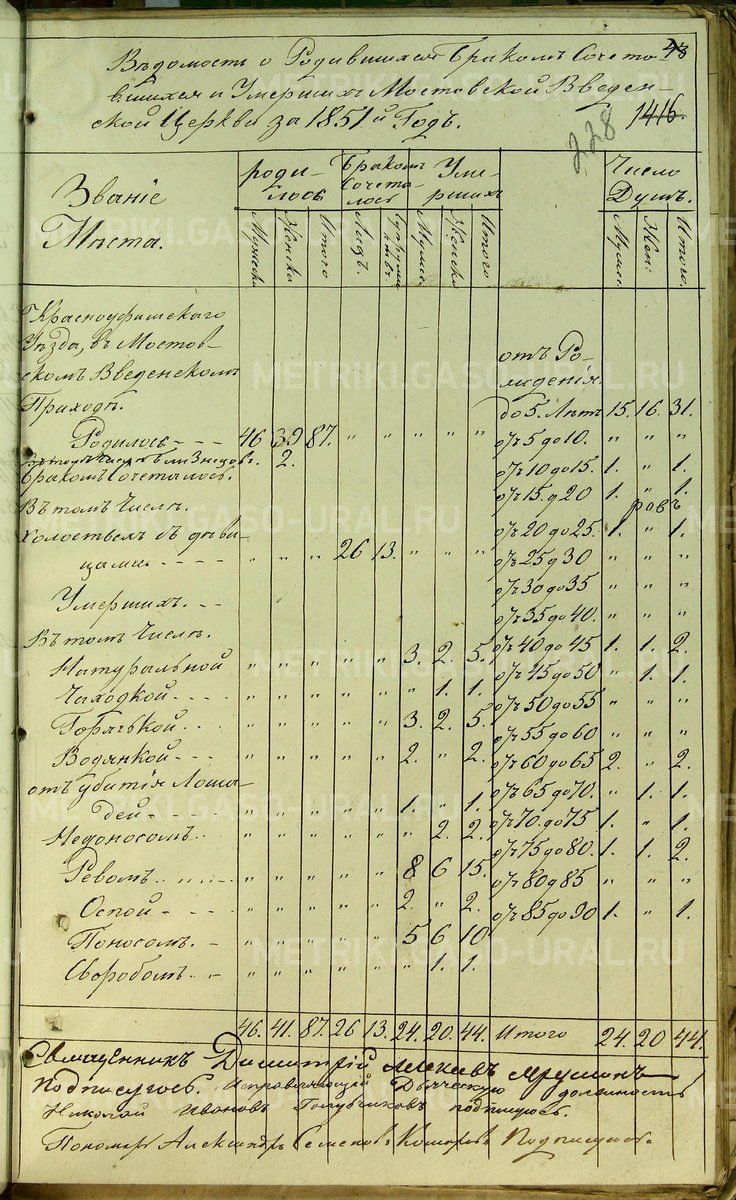 43
Вѣдомость о Родившихся Бракомъ Сочета
вшихся и Умершихъ Мостовской Введен-
ской Церкви за 1851.й Годъ.
1416.
228
Званіе
Мѣста.
роди-
лось
Бракомъ
Сочета-
лось
Уме-
ршихъ
Число
Душъ.
Мужеск
Женски
Итого
Лицъ.
Супруже
Муже
Женско
Итого
Муже
Жен:
Итого.
Красноуфимскаго
Уѣзда, въ Мостов-
скомъ Введенскомъ
Приходѣ.
отъ Ро-
жденія.
до 5. Лѣтъ 15. 16. 31.
Родилось - - - 46 39 87. " " " " " отъ 5 до 10. " " "
Близнецовъ. 2.
Бракомъ Сочеталось. отъ 10 до 15. 1. " 1.
Въ томъ Числѣ. отъ 15 д 20 1. " 1.
Холостыхъ съ дѣви- отъ 20 до 25. 1. " 1.
цами - - - - " " " 26 13. " " " отъ 25 д 30 " " "
отъ 30 до 35 " " "
Умершихъ. - - отъ 35 до 40. " " "
Въ томъ Числѣ. отъ 40 до 45 1. 1. 2.
Натуральной " " " " " 3. 2. 5. отъ 45 до 50 " 1. 1.
Чахоткой - - - " " " " " " 1. 1. отъ 50 до 55 " " "
Горячькой. - - " " " " " 3. 2. 5. отъ 55 до 60 " " "
Водянкой - - - " " " " " 2. " 2. отъ 60 до 65 2. " 2.
отъ убитія Лоша- отъ 65 до 70. " 1. 1.
дей - - - - " " " " " 1. " 1. отъ 70 до 75 1. " 1.
Недоноскомъ - - " " " " " " 2. 2. отъ 75 до 80. 1. 1. 2.
Ревомъ - - - - " " " " " 8 6 15. отъ 80 д 85 " " "
Оспой - - - - " " " " " 2. " 2. отъ 85 до 90 1. " 1.
Поносомъ. - " " " " " 5 6. 10
Своробомъ - - " " " " " " 1. 1.
46. 41. 87. 26 13. 24. 20. 44. Итого 24. 20 44.
Священникъ Димитрій
подписуюсь. Исправляющій Дьяческую должность
Николай Ивановъ Голубчиковъ подпишуюсь.
Пономарь Александръ Семеновъ Подписуюсь.
METRIKI.GASO-URAL.RU